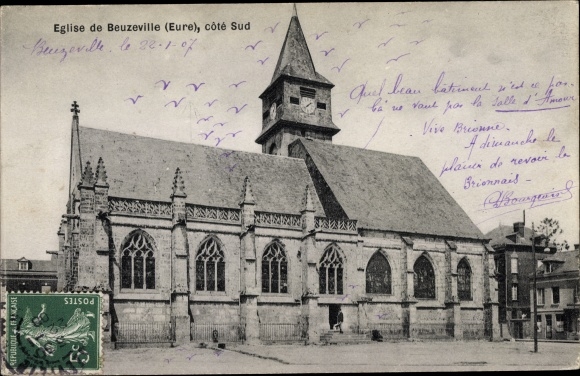 Eglise de Beuzeville (Eure), côté Sud
Beuzeville, le 22-1-07
Quel beau bâtiment n'est ce pas
ça ne vaut pas la salle d'Amour
Vive Brionne.
A dimanche le
plaisir de revoir le
Brionnais -
Bourgeois
5